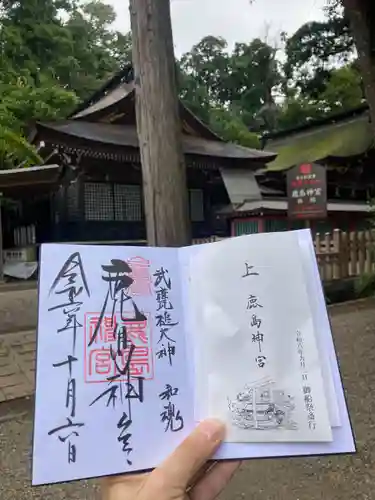 鹿島神宮
武甕槌大神
和魂
鹿島神宮
鹿島神宮
十月十六日
上 鹿島神宮
令和八年九月一日
御船祭斎行